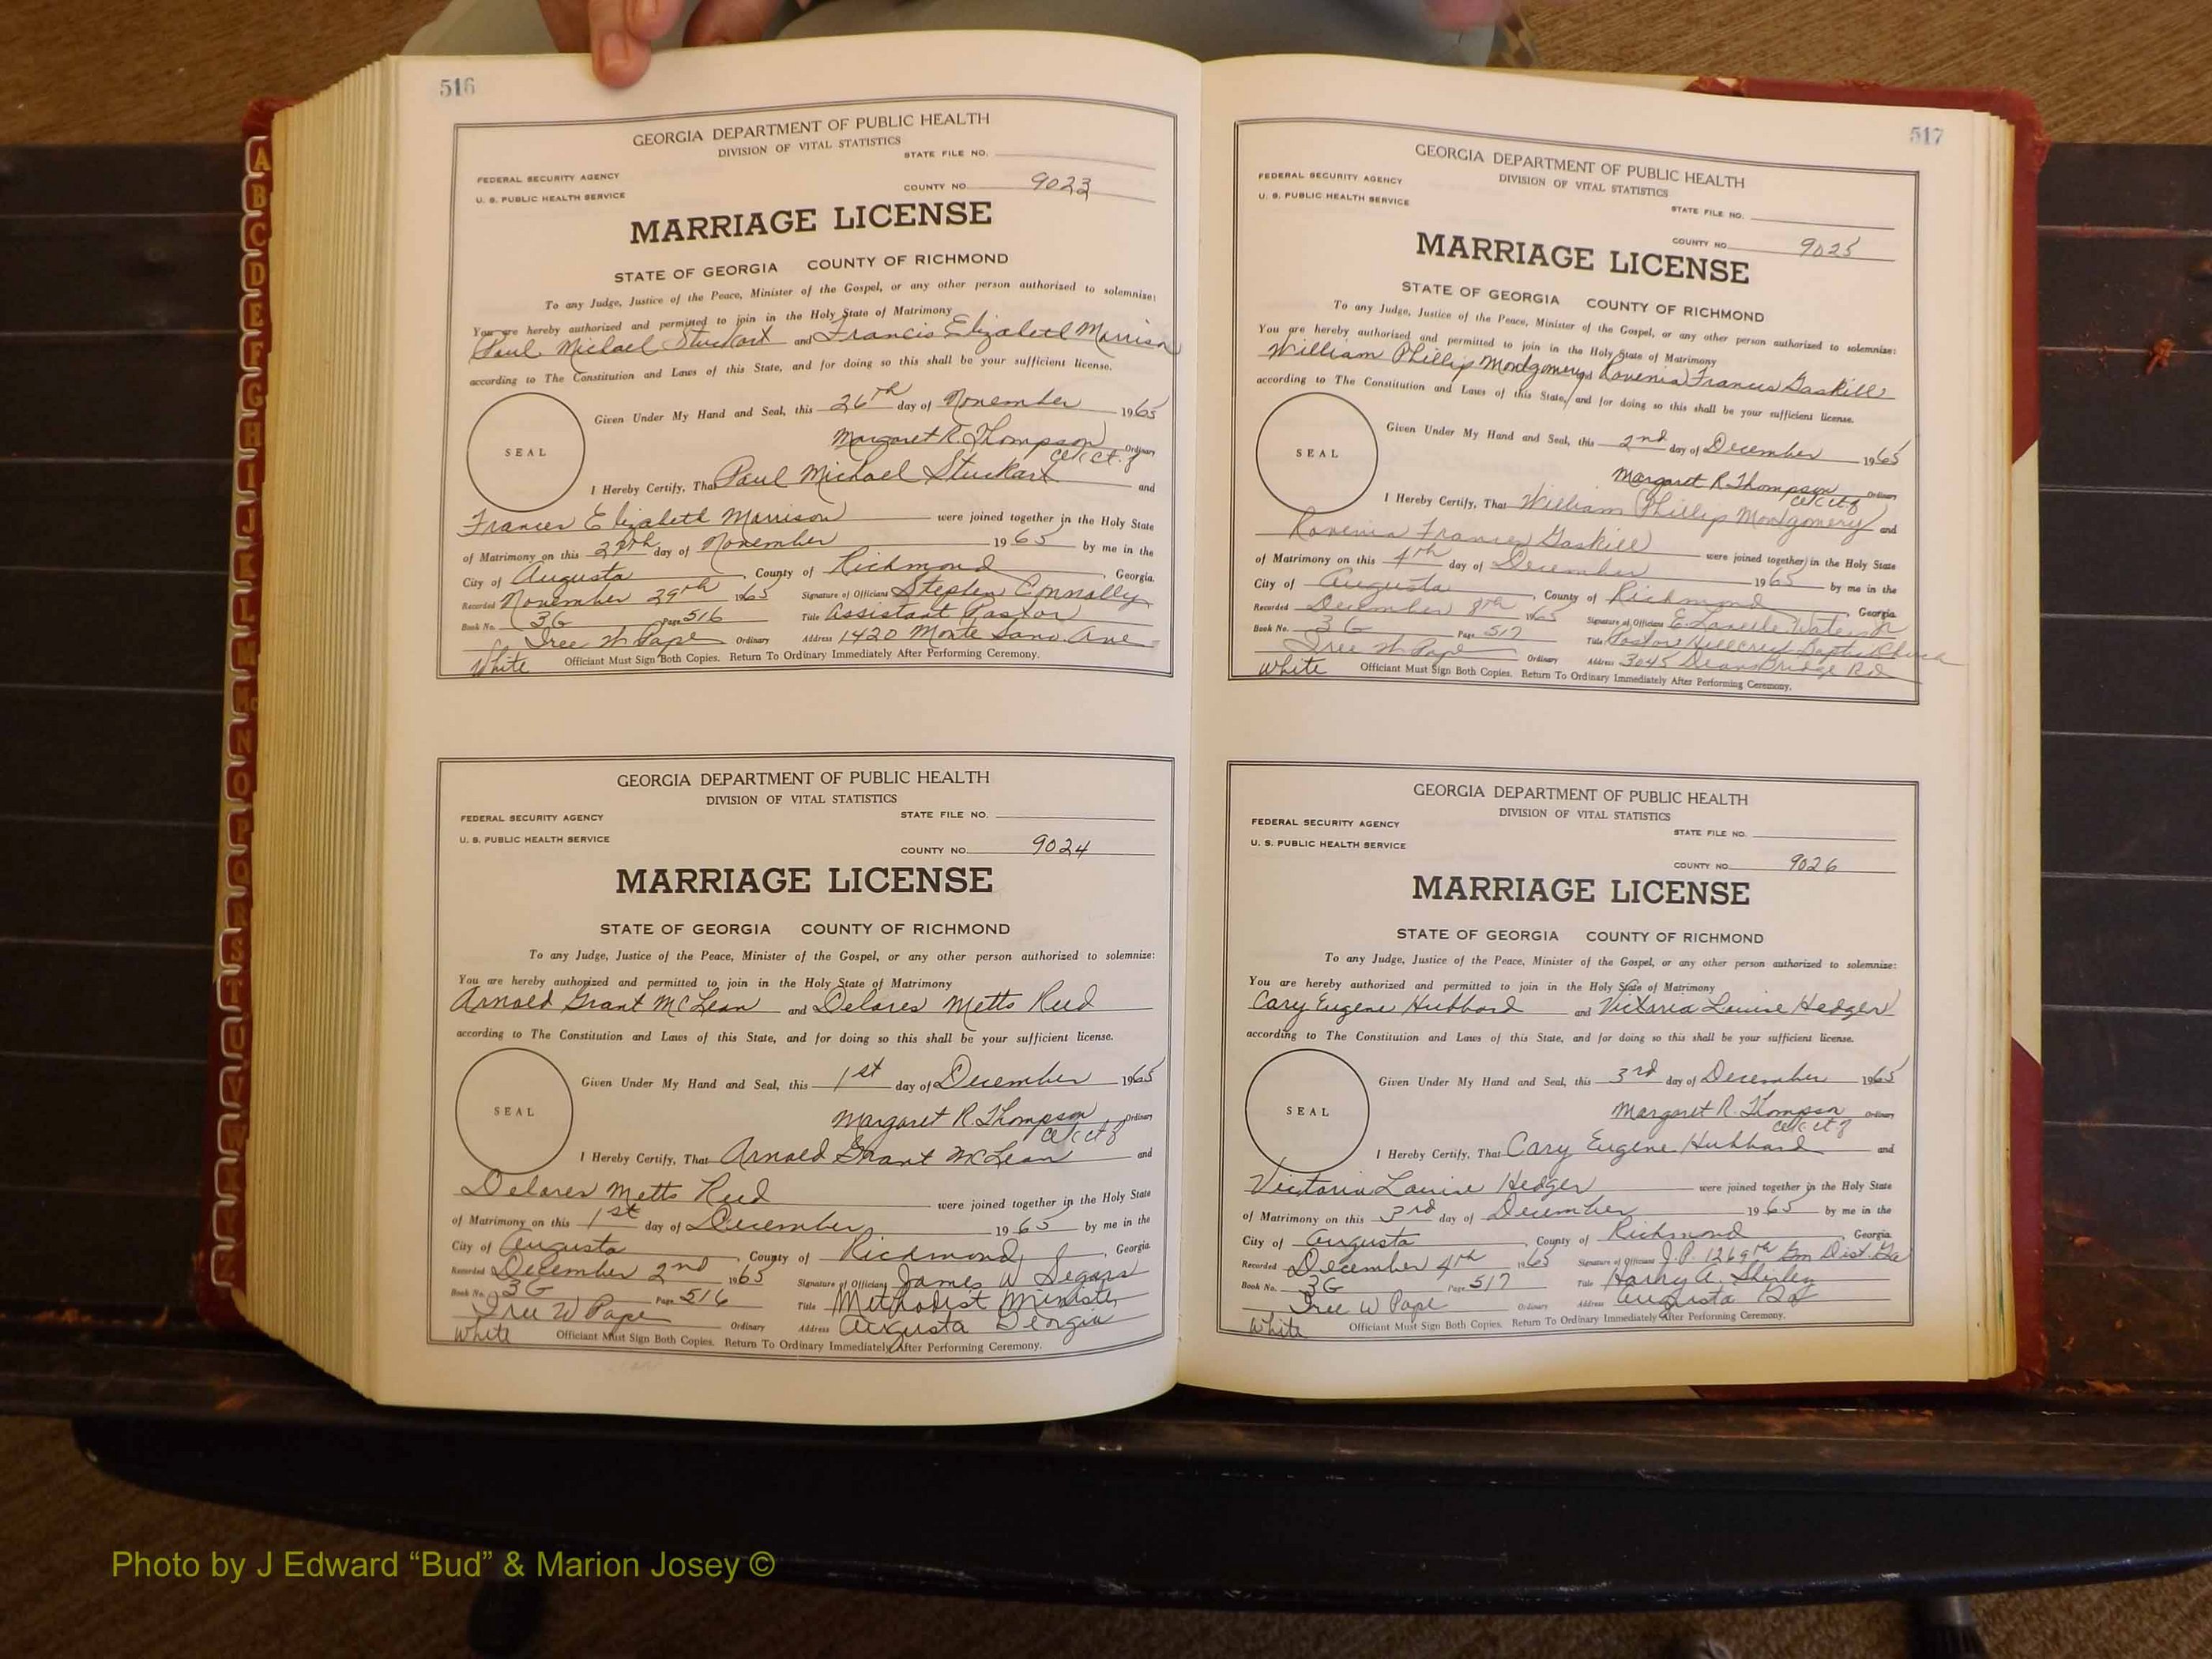 516
GEORGIA DEPARTMENT OF PUBLIC HEALTH
DIVISION OF VITAL STATISTICS
STATE FILE NO.
FEDERAL SECURITY AGENCY
U. S. PUBLIC HEALTH SERVICE
COUNTY NO. 9023
MARRIAGE LICENSE
STATE OF GEORGIA COUNTY OF RICHMOND
To any Judge, Justice of the Peace, Minister of the Gospel, or any other person authorized to solemnize:
You are hereby authorized and permitted to join in the Holy State of Matrimony
Paul Michael Stuckart and Francis Elizabeth Morrison
according to The Constitution and Laws of this State, and for doing so this shall be your sufficient license.
Given Under My Hand and Seal, this 26th day of November 1965
Margaret R. Thompson Ordinary
SEAL
I Hereby Certify, That Paul Michael Stuckart and
Frances Elizabeth Morrison were joined together in the Holy State
of Matrimony on this day of November 1965 by me in the
City of Augusta, County of Richmond, Georgia.
Recorded November 29th 1965 Signature of Officiant Stephen Connolly
Book No. 3G Page 516 Title Assistant Pastor
W Pape Ordinary Address 1420 Monte Sano Ave
White Officiant Must Sign Both Copies. Return To Ordinary Immediately After Performing Ceremony.
GEORGIA DEPARTMENT OF PUBLIC HEALTH
DIVISION OF VITAL STATISTICS
STATE FILE NO.
FEDERAL SECURITY AGENCY
U. S. PUBLIC HEALTH SERVICE
COUNTY NO. 9024
MARRIAGE LICENSE
STATE OF GEORGIA COUNTY OF RICHMOND
To any Judge, Justice of the Peace, Minister of the Gospel, or any other person authorized to solemnize:
You are hereby authorized and permitted to join in the Holy State of Matrimony
Arnold Grant McLean and Delores Metts Reed
according to The Constitution and Laws of this State, and for doing so this shall be your sufficient license.
Given Under My Hand and Seal, this 1st day of December 1965
Margaret R. Thompson Ordinary
SEAL
I Hereby Certify, That Arnold Grant McLean and
Delores Metts Reed were joined together in the Holy State
of Matrimony on this 1st day of December, 1965 by me in the
City of Augusta, County of Richmond, Georgia
Recorded December 2nd 1965 Signature of Officiant James W Segars
Book No. 3G Page 516 Title Methodist Minister
W Pape Ordinary Address Augusta Georgia
White Officiant Must Sign Both Copies. Return To Ordinary Immediately After Performing Ceremony.
517
GEORGIA DEPARTMENT OF PUBLIC HEALTH
DIVISION OF VITAL STATISTICS
FEDERAL SECURITY AGENCY
U. S. PUBLIC HEALTH SERVICE
STATE FILE NO.
COUNTY NO. 9025
MARRIAGE LICENSE
STATE OF GEORGIA COUNTY OF RICHMOND
To any Judge, Justice of the Peace, Minister of the Gospel, or any other person authorized to solemnize:
You are hereby authorized and permitted to join in the Holy State of Matrimony
William Phillip Montgomery and Rovenia Francis Gaskill
according to The Constitution and Laws of this State, and for doing so this shall be your sufficient license.
Given Under My Hand and Seal, this 2nd day of December 1965
Margaret R. Thompson Ordinary
SEAL
I Hereby Certify, That William Phillip Montgomery and
Rovenia Frances Gaskill were joined together in the Holy State
of Matrimony on this 4th day of December 1965 by me in the
City of Augusta, County of Richmond, Georgia
Recorded December 8th 1965 Signature of Officiant E.
Book No. 3G Page 517 Title Pastor Hillcrest Baptist Church
W Pape Ordinary Address 3045 Deans Bridge Rd
White Officiant Must Sign Both Copies. Return To Ordinary Immediately After Performing Ceremony.
GEORGIA DEPARTMENT OF PUBLIC HEALTH
DIVISION OF VITAL STATISTICS
FEDERAL SECURITY AGENCY
STATE FILE NO.
U. S. PUBLIC HEALTH SERVICE
COUNTY NO. 9026
MARRIAGE LICENSE
STATE OF GEORGIA COUNTY OF RICHMOND
To any Judge, Justice of the Peace, Minister of the Gospel, or any other person authorized to solemnize:
You are hereby authorized and permitted to join in the Holy State of Matrimony
Cary Eugene Hubbard and Victoria Louise Hedger
according to The Constitution and Laws of this State, and for doing so this shall be your sufficient license.
Given Under My Hand and Seal, this 3rd day of December 1965
Margaret R. Thompson Ordinary
SEAL
I Hereby Certify, That Cary Eugene Hubbard and
Victoria Louise Hedger were joined together in the Holy State
of Matrimony on this 3rd day of December 1965 by me in the
City of Augusta, County of Richmond, Georgia
Recorded December 4th 1965 Signature of Officiant J.P. 1269th Gm Dist. Ga
Book No. 3G Page 517 Title Harry A. Shirley
W Pape Ordinary Address Augusta Ga
White Officiant Must Sign Both Copies. Return To Ordinary Immediately After Performing Ceremony.
A
B
C
D
E
F
G
H
I
J
K
L
M
Mc
N
O
P
Q
R
S
T
U
V
W
X
Y
Z
Photo by J Edward “Bud” & Marion Josey ©